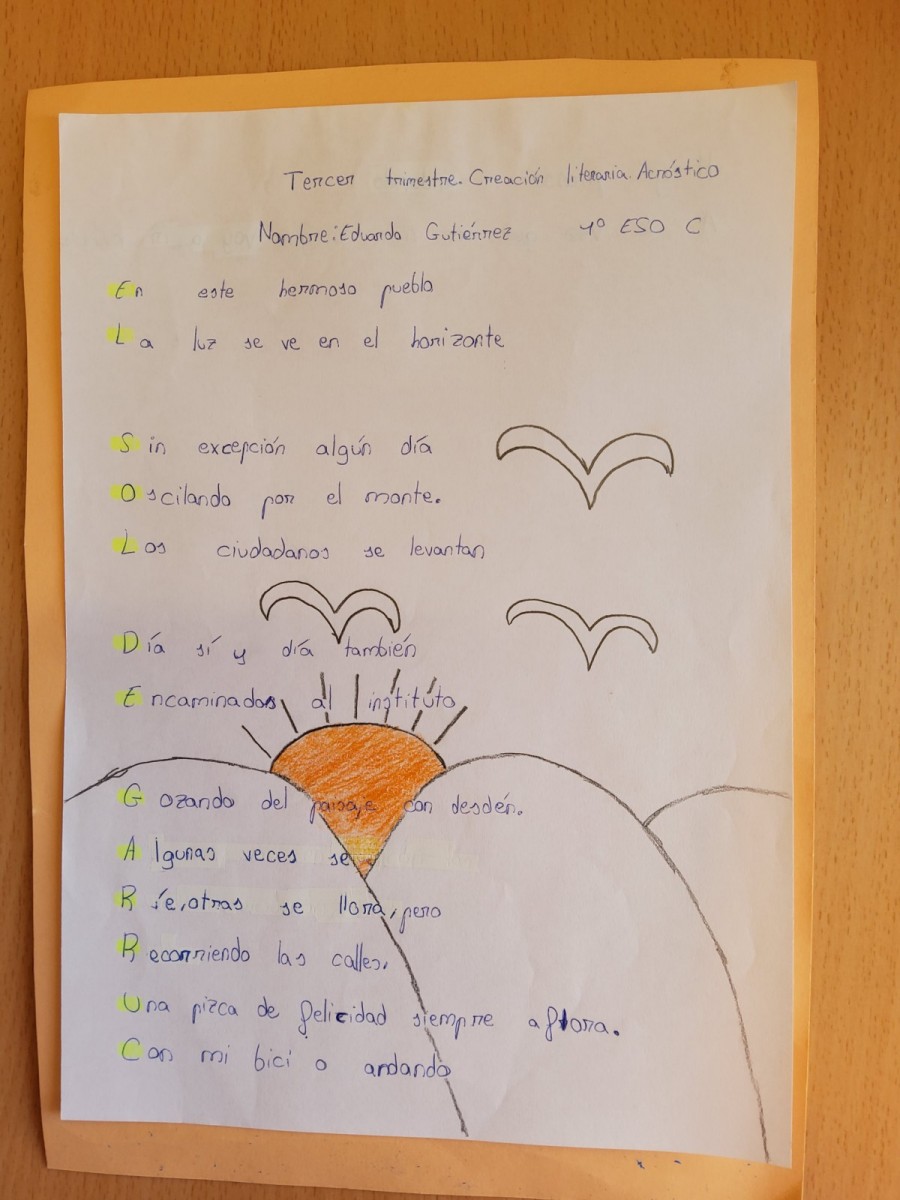 Tercer trimestre. Creación literaria. Acróstico
Nombre: Eduardo Gutiérrez 4º ESO C
En este hermoso pueblo
La luz se ve en el horizonte
Sin excepción algún día
Oscilando por el monte.
Los ciudadanos se levantan
Día sí y día también
Encaminados al instituto
Gozando del paisaje con desdén.
Algunas veces se
Ríe, otras se llora, pero
Recorriendo las calles,
Una pizca de felicidad siempre aflora.
Con mi bici o andando